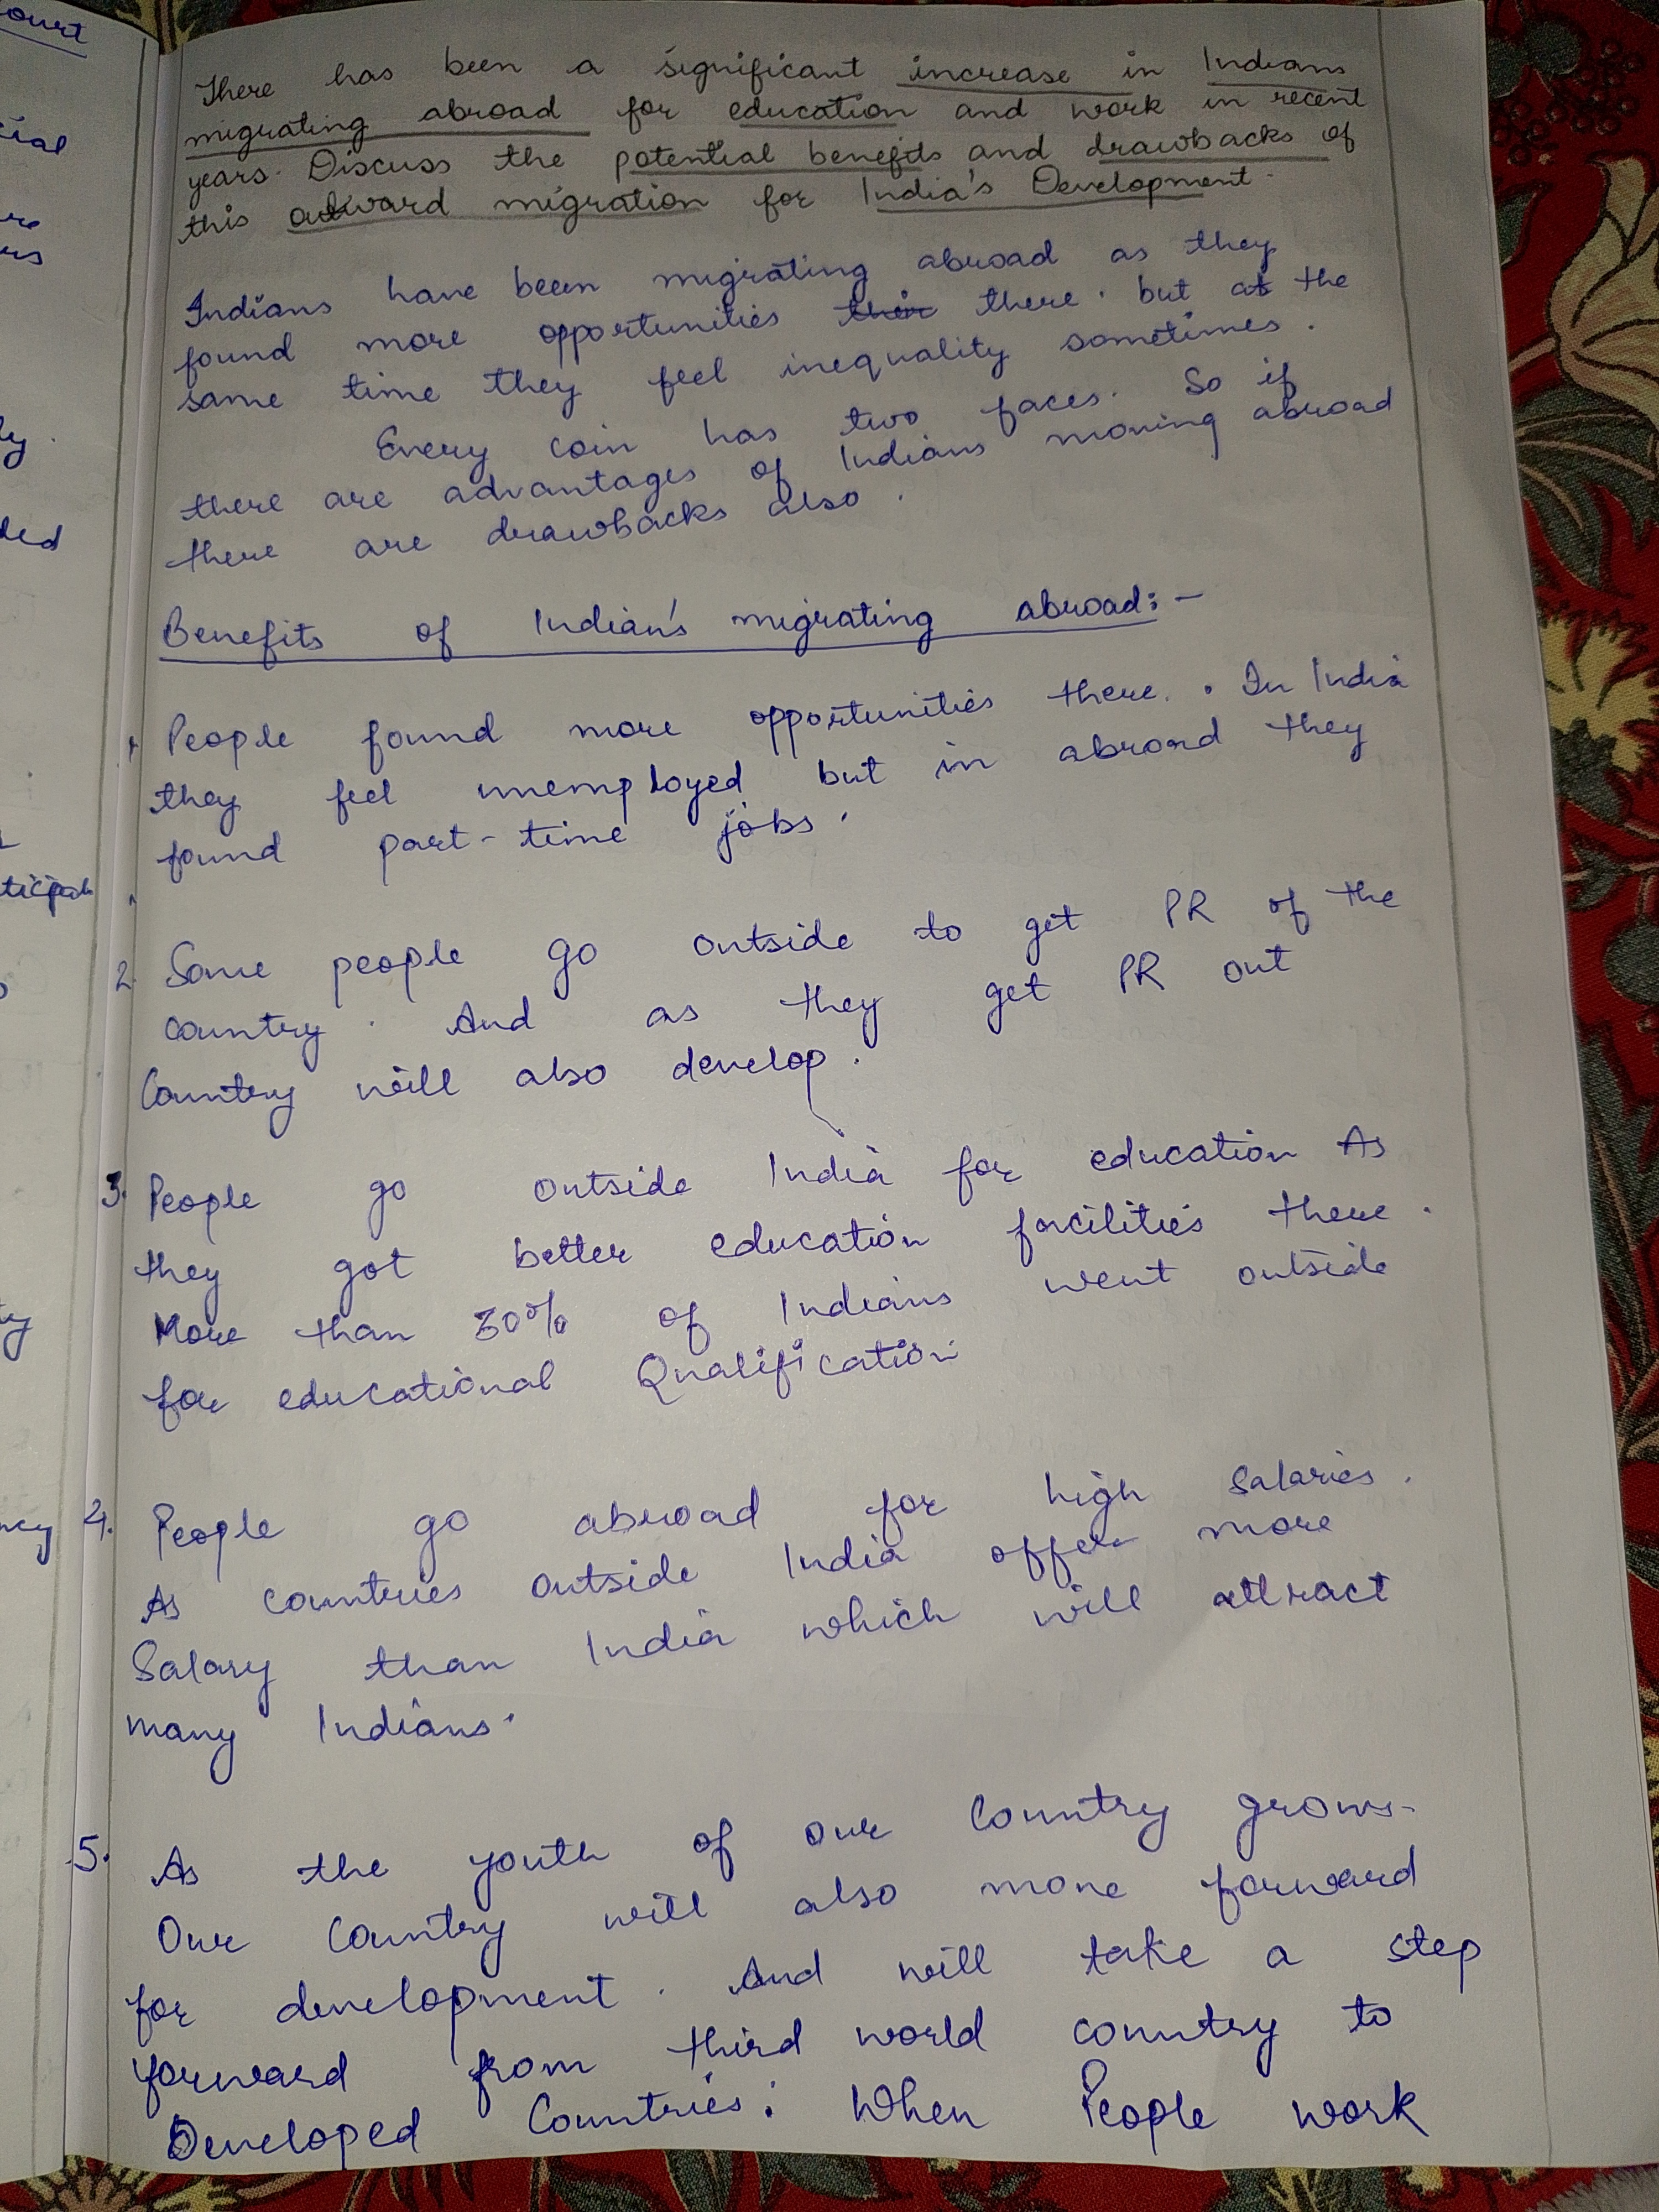 There has been a significant increase in Indians
migrating abroad for education and work in recent
years. Discuss the potential benefits and drawbacks of
this outward migration for India's Development.
Indians have been migrating abroad as they
found more opportunities their there. but at the
same time they feel inequality sometimes.
Every coin has two faces. So if
there are advantages of Indians moving abroad
there are drawbacks also.
Benefits of Indian's migrating abroad:-
1. People found more opportunities there. In India
they feel unemployed but in abroad they
found part-time jobs.
2. Some people go outside to get PR of the
country. And as they get PR out
Country will also develop.
3. People go outside India for education As
they got better education facilities there.
More than 30% of Indians went outside
for educational Qualification
4. People go abroad for high Salaries.
As countries outside India offer more
Salary than India which will attract
many Indians.
5. As the youth of our Country grows.
Our Country will also move forward
for development. And will take a step
forward from third world country to
Developed Countries. When People work
ourt
cial
ly.
ded
ticipat
ty
ncy